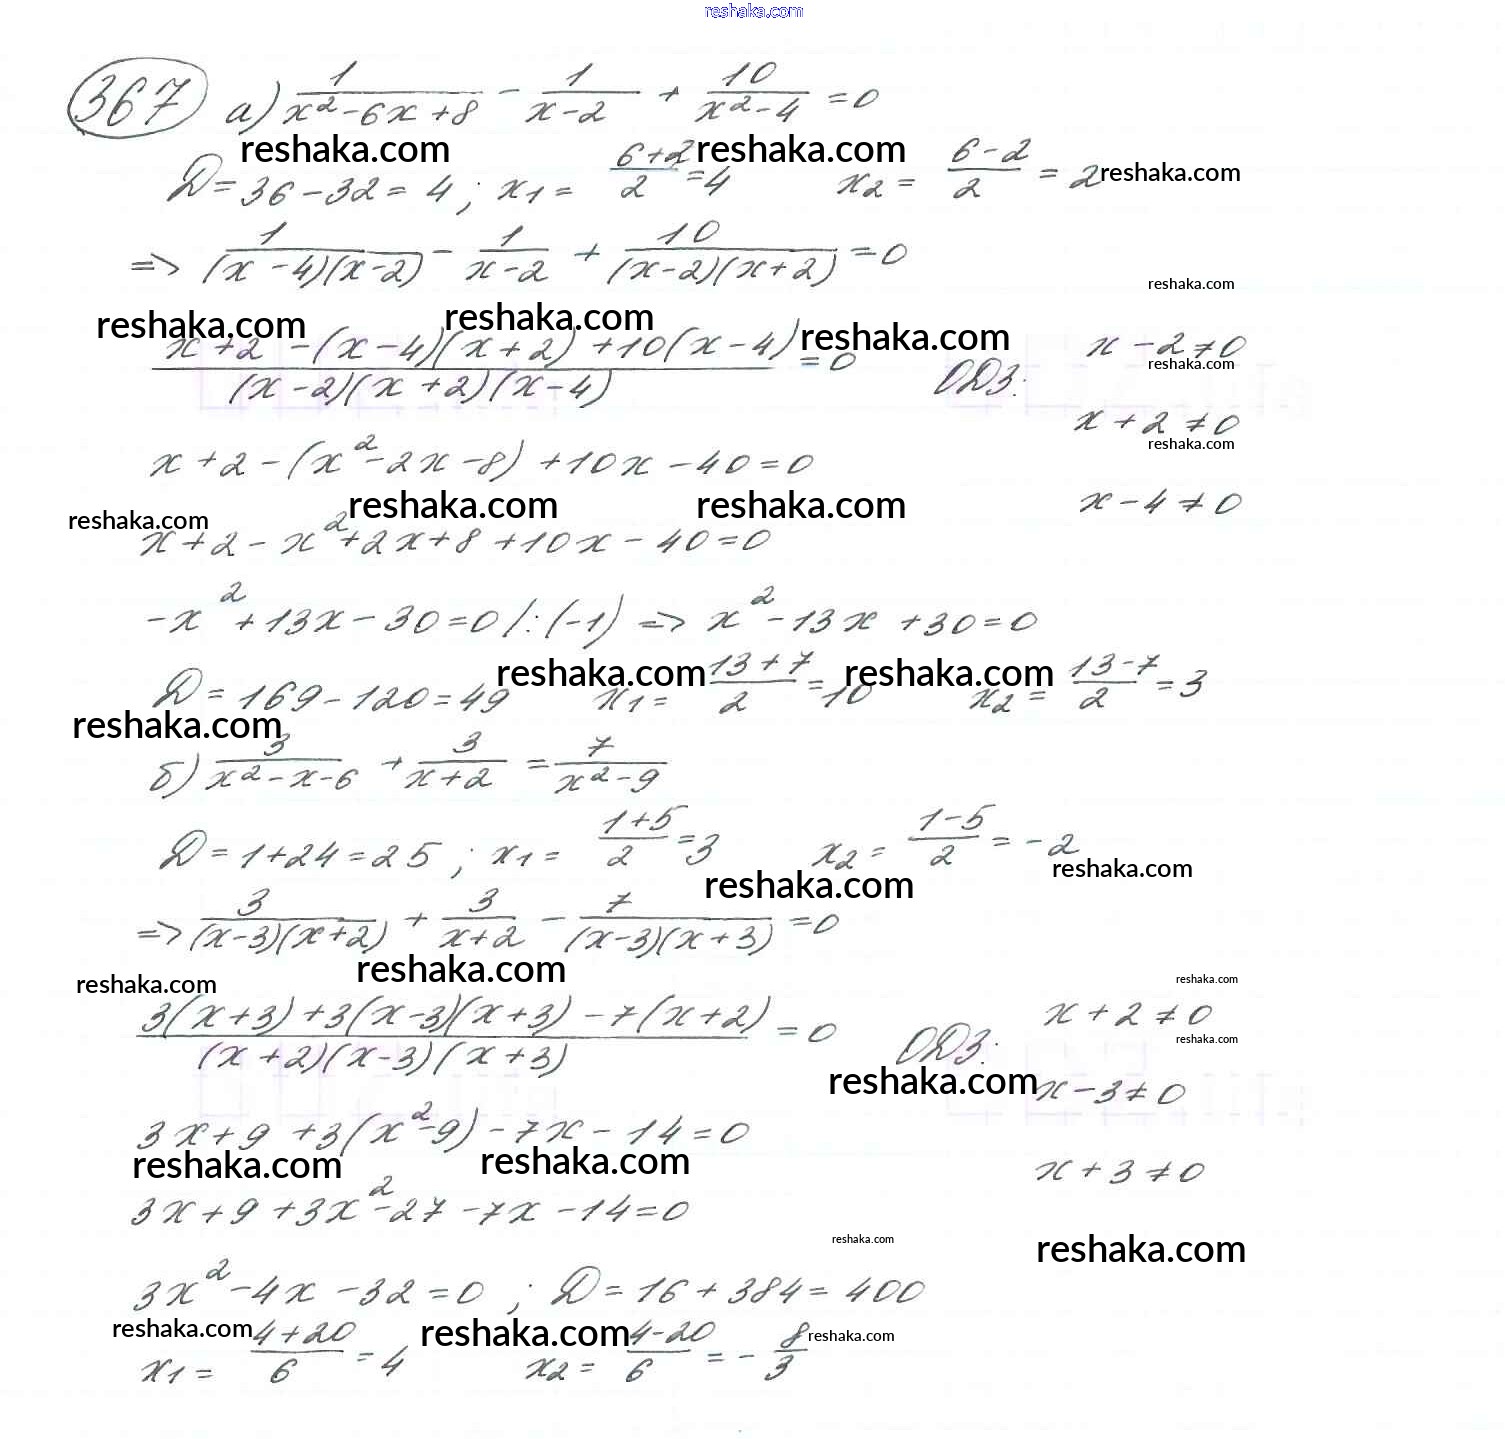 reshaka.com
367 а) 1/(x²-6x+8) - 1/(x-2) + 10/(x²-4) =0
reshaka.com reshaka.com reshaka.com
D=36-32=4; x1= (6+2)/2 =4 x2= (6-2)/2 =2
=> 1/((x-4)(x-2)) - 1/(x-2) + 10/((x-2)(x+2)) =0
reshaka.com
reshaka.com reshaka.com reshaka.com
(x+2-(x-4)(x+2)+10(x-4))/((x-2)(x+2)(x-4)) =0 ОДЗ: x-2≠0
reshaka.com
x+2≠0
reshaka.com
x+2-(x²-2x-8)+10x-40=0
x-4≠0
reshaka.com reshaka.com reshaka.com
x+2-x²+2x+8+10x-40=0
-x²+13x-30=0 /:(-1) => x²-13x+30=0
reshaka.com reshaka.com
D=169-120=49 x1= (13+7)/2 =10 x2= (13-7)/2 =3
reshaka.com
б) 3/(x²-x-6) + 3/(x+2) = 7/(x²-9)
D=1+24=25; x1= (1+5)/2 =3 x2= (1-5)/2 = -2
reshaka.com reshaka.com
=> 3/((x-3)(x+2)) + 3/(x+2) - 7/((x-3)(x+3)) =0
reshaka.com reshaka.com reshaka.com
(3(x+3)+3(x-3)(x+3)-7(x+2))/((x+2)(x-3)(x+3)) =0 ОДЗ: x+2≠0
reshaka.com
reshaka.com x-3≠0
3x+9+3(x²-9)-7x-14=0
reshaka.com reshaka.com
x+3≠0
3x+9+3x²-27-7x-14=0
reshaka.com reshaka.com
3x²-4x-32=0; D=16+384=400
reshaka.com reshaka.com reshaka.com
x1= (4+20)/6 =4 x2= (4-20)/6 = -8/3